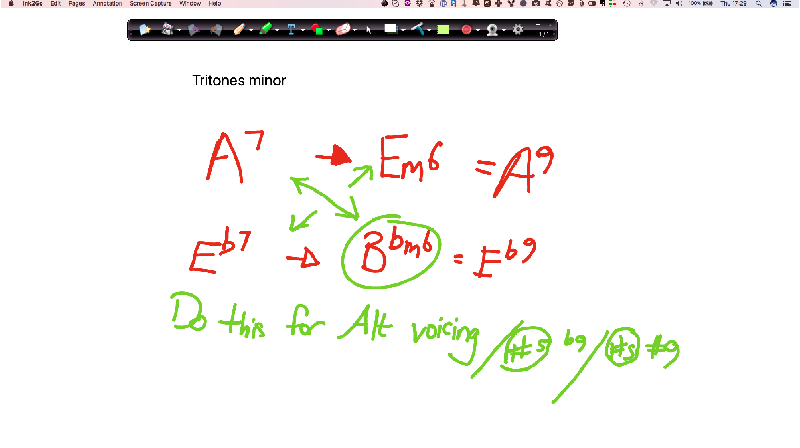 Ink2Go File Edit Pages Annotation Screen Capture Window Help 100% Thu 17:29
Tritones minor
A7 → Em6 = A9
Eb7 → Bbm6 = Eb9
Do this for Alt voicing / #5 b9 / #5 #9